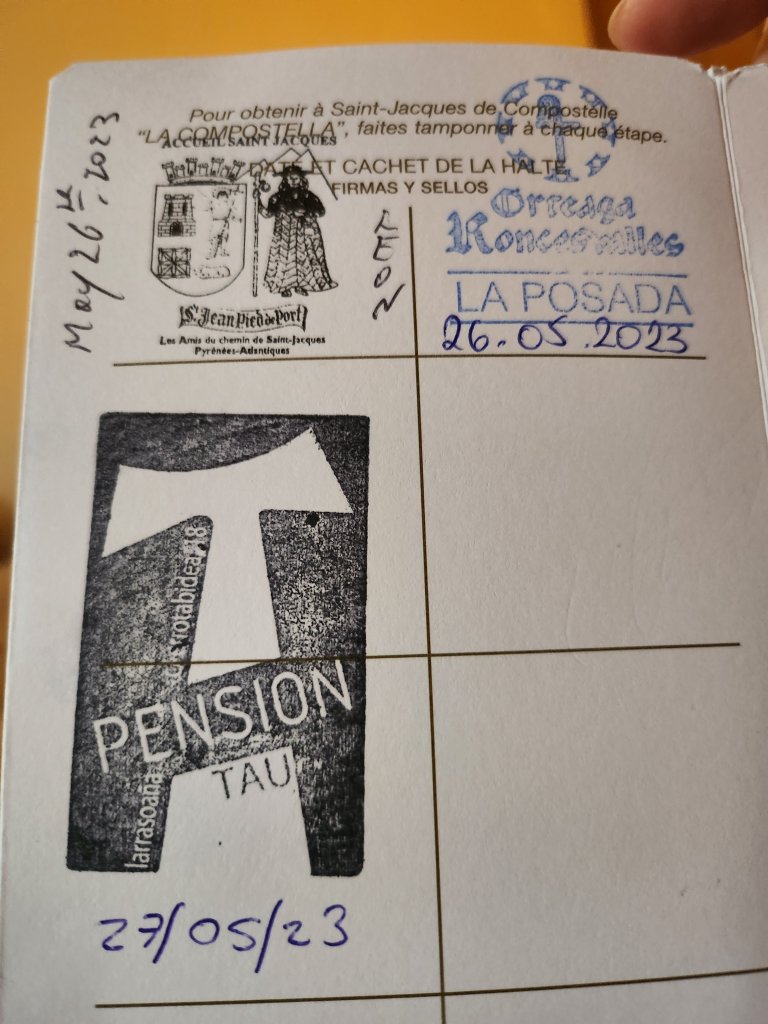 Pour obtenir à Saint-Jacques de Compostelle
"LA COMPOSTELLA", faites tamponner à chaque étape.
DATE ET CACHET DE LA HALTE
FIRMAS Y SELLOS
May 26th. 2023
ACCUEIL SAINT JACQUES
St. Jean Pied de Port
Les Amis du chemin de Saint-Jacques
Pyrénées-Atlantiques
LEON
Orreaga
Roncesvalles
LA POSADA
26.05.2023
PENSION
TAU
larrasoaña
18
27/05/23